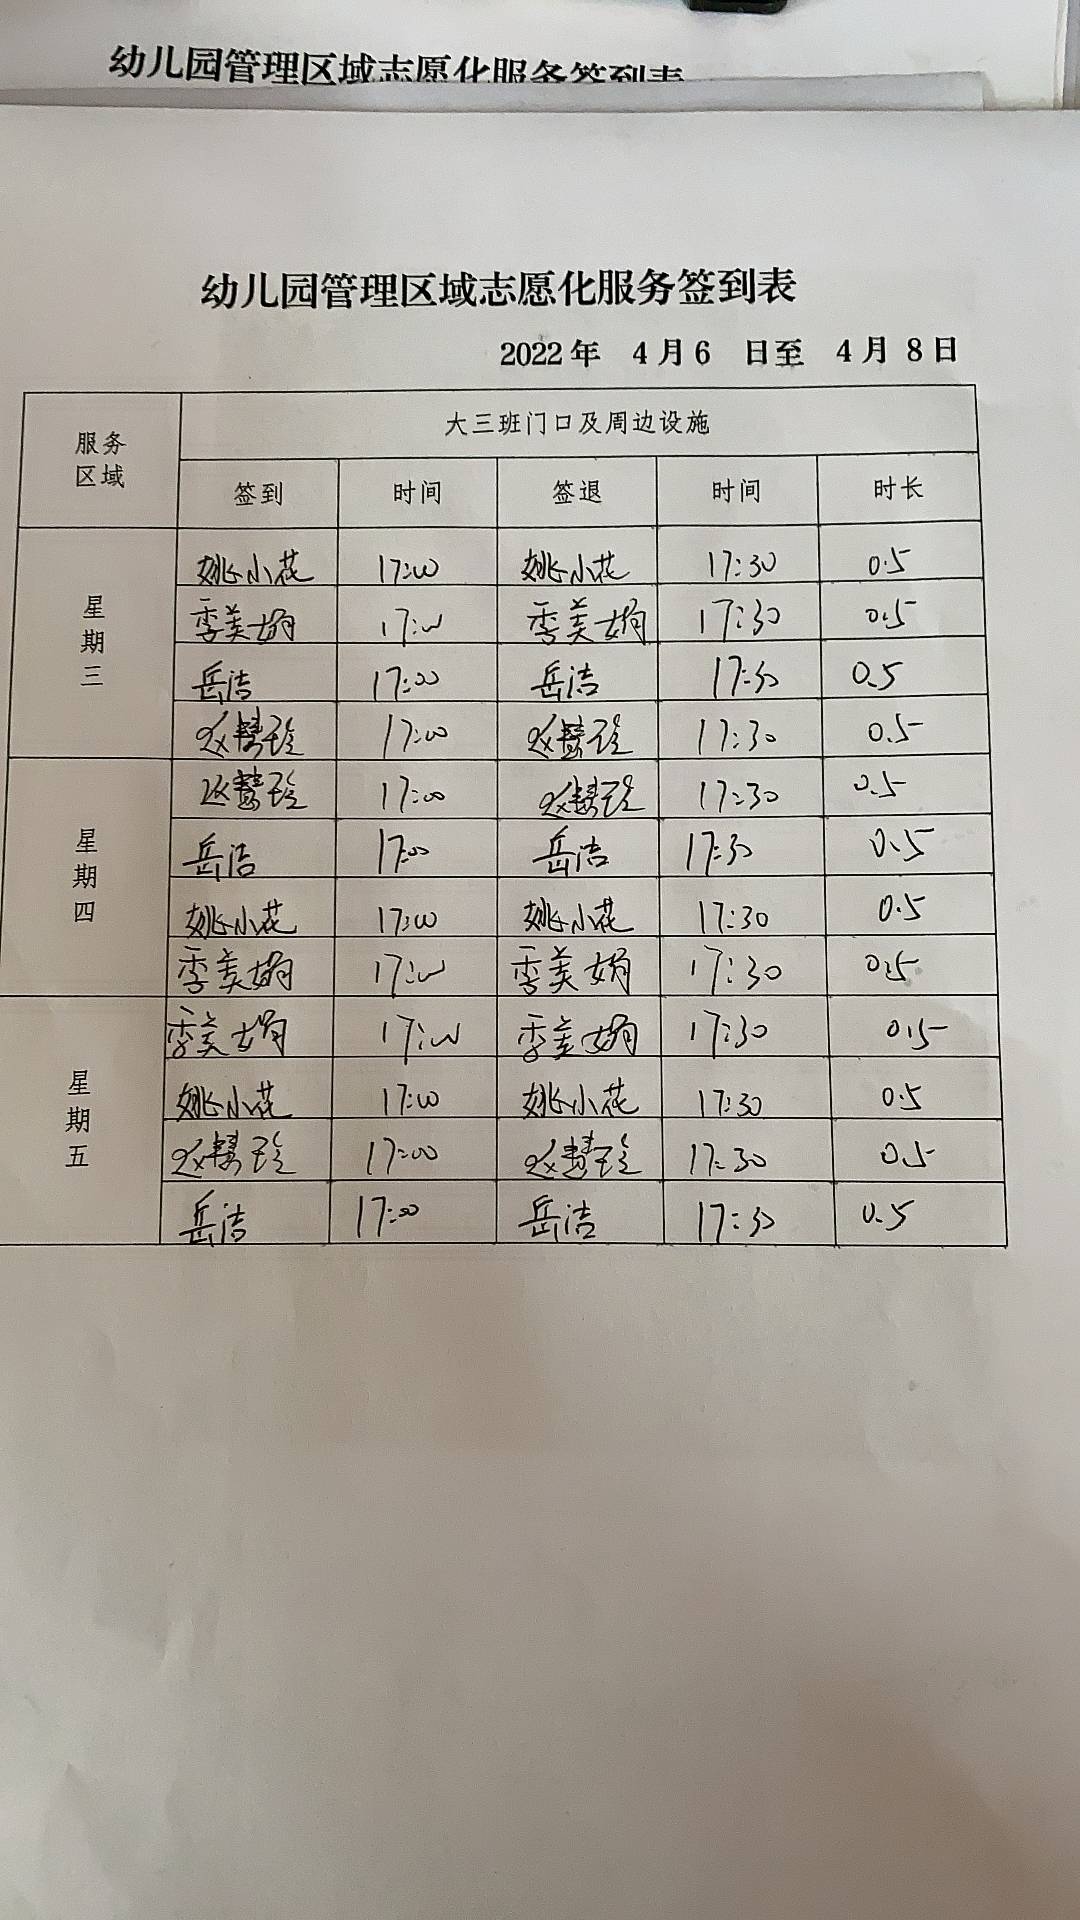 幼儿园管理区域志愿化服务签到表
幼儿园管理区域志愿化服务签到表
2022年 4月6 日至 4月8日
服务区域 大三班门口及周边设施
签到 时间 签退 时间 时长
星期三
姚小花 17:00 姚小花 17:30 0.5
季美娟 17:00 季美娟 17:30 0.5
岳洁 17:00 岳洁 17:30 0.5
赵慧玲 17:00 赵慧玲 17:30 0.5
星期四
赵慧玲 17:00 赵慧玲 17:30 0.5
岳洁 17:00 岳洁 17:30 0.5
姚小花 17:00 姚小花 17:30 0.5
季美娟 17:00 季美娟 17:30 0.5
星期五
季美娟 17:00 季美娟 17:30 0.5
姚小花 17:00 姚小花 17:30 0.5
赵慧玲 17:00 赵慧玲 17:30 0.5
岳洁 17:00 岳洁 17:30 0.5